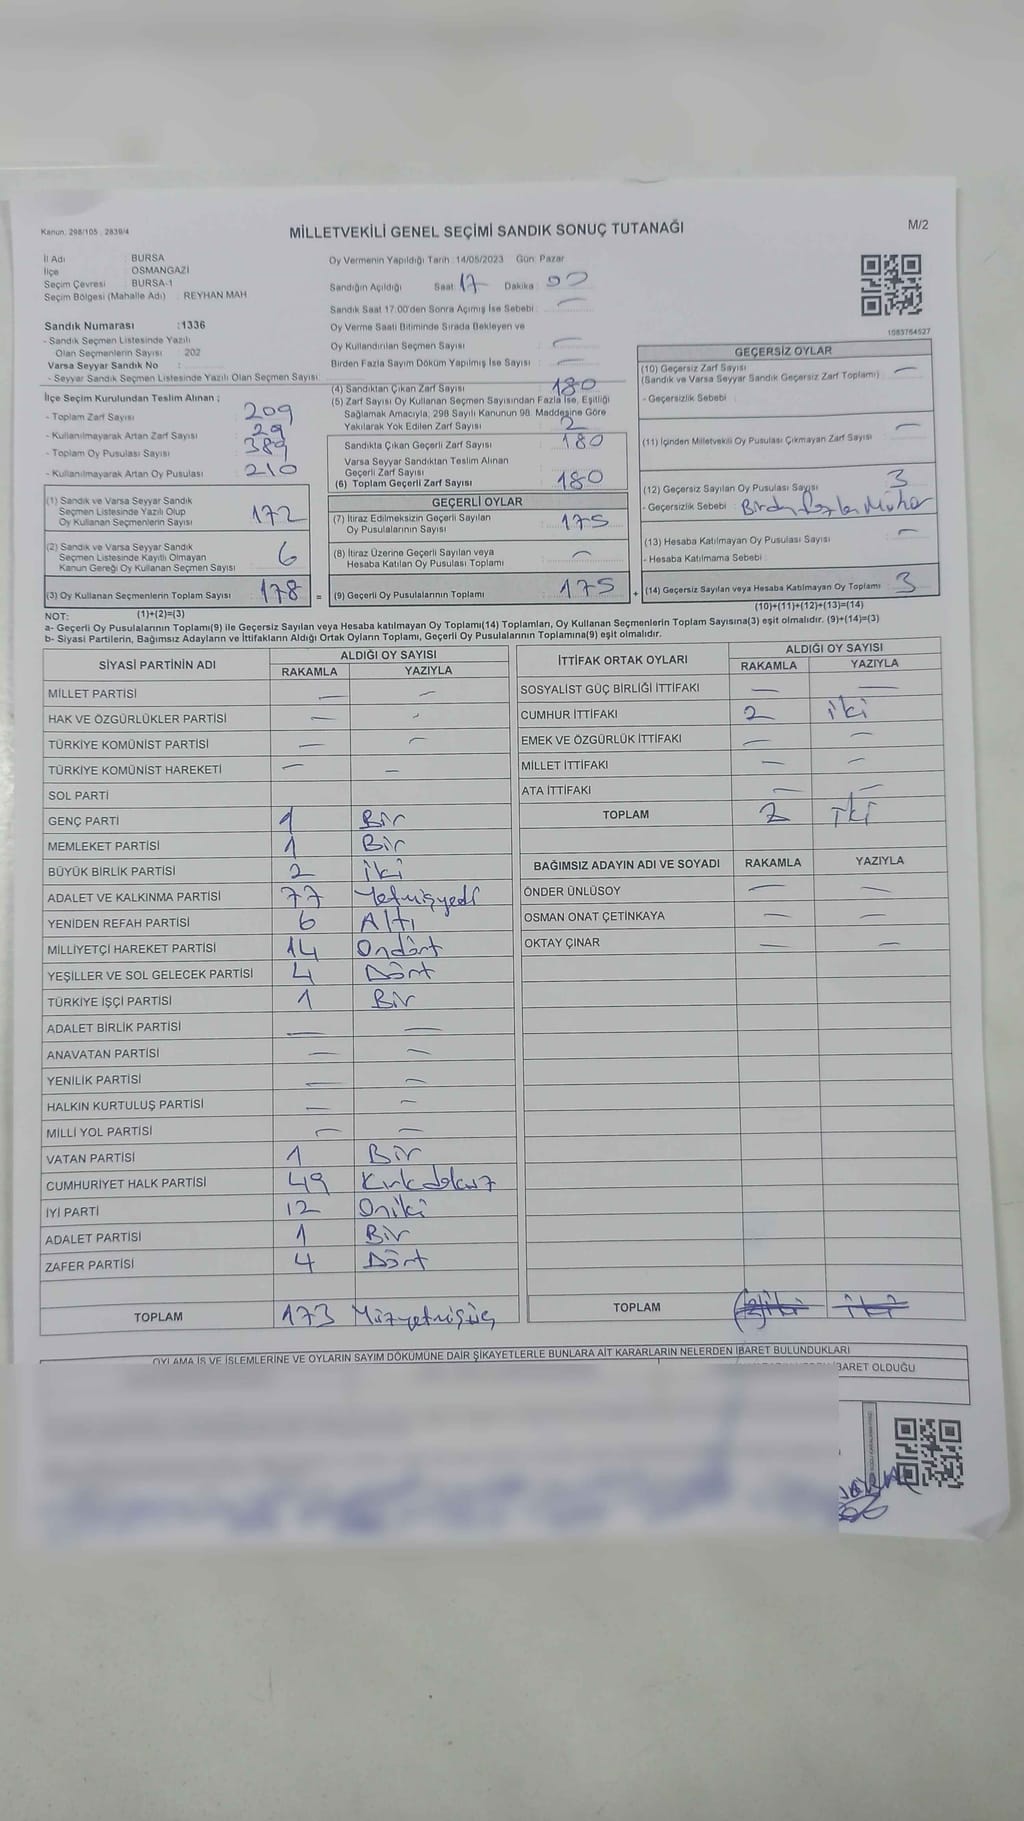 Kanun: 298/105 , 2839/4
MİLLETVEKİLİ GENEL SEÇİMİ SANDIK SONUÇ TUTANAĞI
M/2
İl Adı : BURSA
İlçe : OSMANGAZİ
Seçim Çevresi : BURSA-1
Seçim Bölgesi (Mahalle Adı) : REYHAN MAH
Sandık Numarası :1336
- Sandık Seçmen Listesinde Yazılı
Olan Seçmenlerin Sayısı : 202
Varsa Seyyar Sandık No :
- Seyyar Sandık Seçmen Listesinde Yazılı Olan Seçmen Sayısı:
İlçe Seçim Kurulundan Teslim Alınan ;
- Toplam Zarf Sayısı : 209
- Kullanılmayarak Artan Zarf Sayısı : 29
- Toplam Oy Pusulası Sayısı : 389
- Kullanılmayarak Artan Oy Pusulası : 210
(1) Sandık ve Varsa Seyyar Sandık
Seçmen Listesinde Yazılı Olup
Oy Kullanan Seçmenlerin Sayısı : 172
(2) Sandık ve Varsa Seyyar Sandık
Seçmen Listesinde Kayıtlı Olmayan
Kanun Gereği Oy Kullanan Seçmen Sayısı : 6
(3) Oy Kullanan Seçmenlerin Toplam Sayısı : 178 =
Oy Vermenin Yapıldığı Tarih :14/05/2023 Gün: Pazar
Sandığın Açıldığı Saat: 17 Dakika: 00
Sandık Saat 17:00'den Sonra Açılmış İse Sebebi : —
Oy Verme Saati Bitiminde Sırada Bekleyen ve
Oy Kullandırılan Seçmen Sayısı : —
Birden Fazla Sayım Döküm Yapılmış İse Sayısı : —
(4) Sandıktan Çıkan Zarf Sayısı : 180
(5) Zarf Sayısı Oy Kullanan Seçmen Sayısından Fazla İse, Eşitliği
Sağlamak Amacıyla; 298 Sayılı Kanunun 98. Maddesine Göre
Yakılarak Yok Edilen Zarf Sayısı : 2
Sandıkta Çıkan Geçerli Zarf Sayısı : 180
Varsa Seyyar Sandıktan Teslim Alınan
Geçerli Zarf Sayısı :
(6) Toplam Geçerli Zarf Sayısı : 180
GEÇERLİ OYLAR
(7) İtiraz Edilmeksizin Geçerli Sayılan
Oy Pusulalarının Sayısı : 175
(8) İtiraz Üzerine Geçerli Sayılan veya
Hesaba Katılan Oy Pusulası Toplamı : —
(9) Geçerli Oy Pusulalarının Toplamı : 175 +
1083764527
GEÇERSİZ OYLAR
(10) Geçersiz Zarf Sayısı : —
(Sandık ve Varsa Seyyar Sandık Geçersiz Zarf Toplamı)
- Geçersizlik Sebebi :
(11) İçinden Milletvekili Oy Pusulası Çıkmayan Zarf Sayısı : —
(12) Geçersiz Sayılan Oy Pusulası Sayısı : 3
- Geçersizlik Sebebi : Birden fazla Mühür
(13) Hesaba Katılmayan Oy Pusulası Sayısı : —
- Hesaba Katılmama Sebebi :
(14) Geçersiz Sayılan veya Hesaba Katılmayan Oy Toplamı : 3
NOT: (1)+(2)=(3)
(10)+(11)+(12)+(13)=(14)
a- Geçerli Oy Pusulalarının Toplamı(9) ile Geçersiz Sayılan veya Hesaba katılmayan Oy Toplamı(14) Toplamları, Oy Kullanan Seçmenlerin Toplam Sayısına(3) eşit olmalıdır. (9)+(14)=(3)
b- Siyasi Partilerin, Bağımsız Adayların ve İttifakların Aldığı Ortak Oyların Toplamı, Geçerli Oy Pusulalarının Toplamına(9) eşit olmalıdır.
SİYASİ PARTİNİN ADI ALDIĞI OY SAYISI
RAKAMLA YAZIYLA
MİLLET PARTİSİ — —
HAK VE ÖZGÜRLÜKLER PARTİSİ — —
TÜRKİYE KOMÜNİST PARTİSİ — —
TÜRKİYE KOMÜNİST HAREKETİ — —
SOL PARTİ
GENÇ PARTİ 1 Bir
MEMLEKET PARTİSİ 1 Bir
BÜYÜK BİRLİK PARTİSİ 2 iki
ADALET VE KALKINMA PARTİSİ 77 Yetmişyedi
YENİDEN REFAH PARTİSİ 6 Altı
MİLLİYETÇİ HAREKET PARTİSİ 14 Ondört
YEŞİLLER VE SOL GELECEK PARTİSİ 4 Dört
TÜRKİYE İŞÇİ PARTİSİ 1 Bir
ADALET BİRLİK PARTİSİ — —
ANAVATAN PARTİSİ — —
YENİLİK PARTİSİ — —
HALKIN KURTULUŞ PARTİSİ — —
MİLLİ YOL PARTİSİ — —
VATAN PARTİSİ 1 Bir
CUMHURİYET HALK PARTİSİ 49 Kırkdokuz
İYİ PARTİ 12 Oniki
ADALET PARTİSİ 1 Bir
ZAFER PARTİSİ 4 Dört
TOPLAM 173 Yüzyetmişüç
İTTİFAK ORTAK OYLARI ALDIĞI OY SAYISI
RAKAMLA YAZIYLA
SOSYALİST GÜÇ BİRLİĞİ İTTİFAKI — —
CUMHUR İTTİFAKI 2 iki
EMEK VE ÖZGÜRLÜK İTTİFAKI — —
MİLLET İTTİFAKI — —
ATA İTTİFAKI — —
TOPLAM 2 iki
BAĞIMSIZ ADAYIN ADI VE SOYADI RAKAMLA YAZIYLA
ÖNDER ÜNLÜSOY — —
OSMAN ONAT ÇETİNKAYA — —
OKTAY ÇINAR — —
TOPLAM
OYLAMA İŞ VE İŞLEMLERİNE VE OYLARIN SAYIM DÖKÜMÜNE DAİR ŞİKAYETLERLE BUNLARA AİT KARARLARIN NELERDEN İBARET BULUNDUKLARI
İBARET OLDUĞU